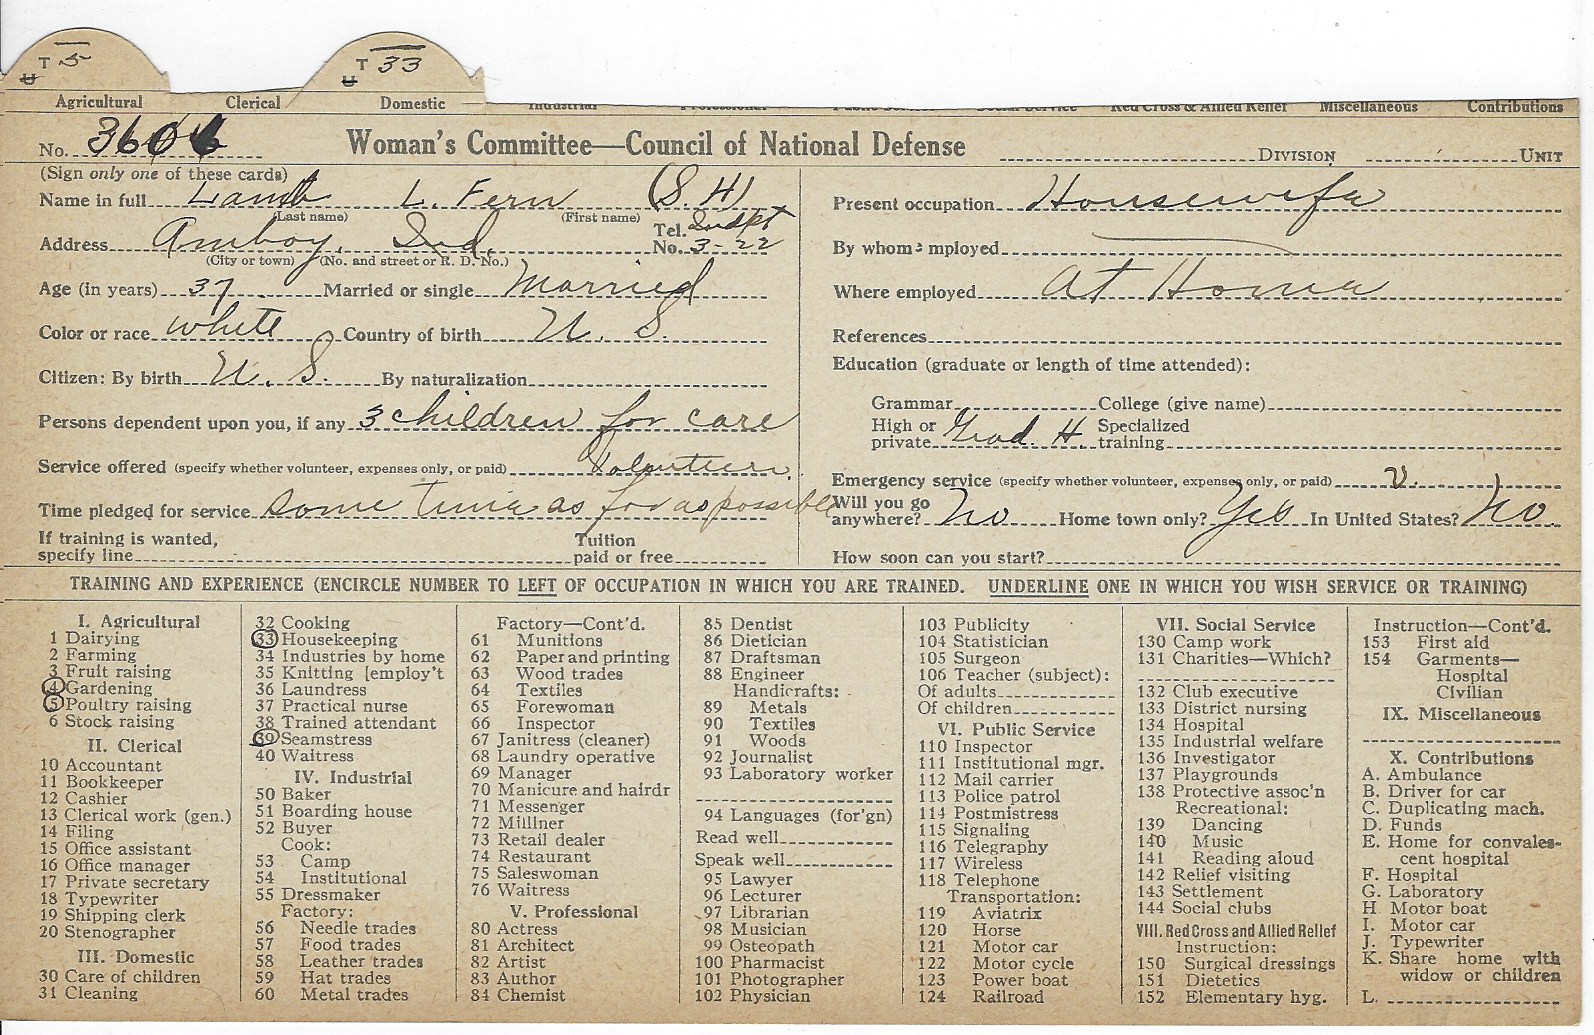 T 5 T 33
U U
Agricultural Clerical Domestic Industrial Professional Public Service Social Service Red Cross & Allied Relief Miscellaneous Contributions
No. 3606 Woman's Committee—Council of National Defense DIVISION UNIT
(Sign only one of these cards)
Name in full Lamb L. Fern (S. H)
(Last name) (First name)
Address Amboy, Ind. Tel. No. Indpt 3-22
(City or town) (No. and street or R. D. No.)
Age (in years) 37 Married or single Married
Color or race White Country of birth U. S.
Citizen: By birth U. S. By naturalization
Persons dependent upon you, if any 3 children for care
Service offered (specify whether volunteer, expenses only, or paid) Volunteer.
Time pledged for service some time as far as possible
If training is wanted, specify line Tuition paid or free
Present occupation Housewife
By whom employed
Where employed At Home
References
Education (graduate or length of time attended):
Grammar College (give name)
High or private Grad. H. Specialized training
Emergency service (specify whether volunteer, expenses only, or paid) v.
Will you go anywhere? No Home town only? Yes In United States? No.
How soon can you start?
TRAINING AND EXPERIENCE (ENCIRCLE NUMBER TO LEFT OF OCCUPATION IN WHICH YOU ARE TRAINED. UNDERLINE ONE IN WHICH YOU WISH SERVICE OR TRAINING)
I. Agricultural
1 Dairying
2 Farming
3 Fruit raising
4 Gardening
5 Poultry raising
6 Stock raising
II. Clerical
10 Accountant
11 Bookkeeper
12 Cashier
13 Clerical work (gen.)
14 Filing
15 Office assistant
16 Office manager
17 Private secretary
18 Typewriter
19 Shipping clerk
20 Stenographer
III. Domestic
30 Care of children
31 Cleaning
32 Cooking
33 Housekeeping
34 Industries by home
35 Knitting [employ't
36 Laundress
37 Practical nurse
38 Trained attendant
39 Seamstress
40 Waitress
IV. Industrial
50 Baker
51 Boarding house
52 Buyer
Cook:
53 Camp
54 Institutional
55 Dressmaker
Factory:
56 Needle trades
57 Food trades
58 Leather trades
59 Hat trades
60 Metal trades
Factory—Cont'd.
61 Munitions
62 Paper and printing
63 Wood trades
64 Textiles
65 Forewoman
66 Inspector
67 Janitress (cleaner)
68 Laundry operative
69 Manager
70 Manicure and hairdr
71 Messenger
72 Milliner
73 Retail dealer
74 Restaurant
75 Saleswoman
76 Waitress
V. Professional
80 Actress
81 Architect
82 Artist
83 Author
84 Chemist
85 Dentist
86 Dietician
87 Draftsman
88 Engineer
Handicrafts:
89 Metals
90 Textiles
91 Woods
92 Journalist
93 Laboratory worker
94 Languages (for'gn)
Read well
Speak well
95 Lawyer
96 Lecturer
97 Librarian
98 Musician
99 Osteopath
100 Pharmacist
101 Photographer
102 Physician
103 Publicity
104 Statistician
105 Surgeon
106 Teacher (subject):
Of adults
Of children
VI. Public Service
110 Inspector
111 Institutional mgr.
112 Mail carrier
113 Police patrol
114 Postmistress
115 Signaling
116 Telegraphy
117 Wireless
118 Telephone
Transportation:
119 Aviatrix
120 Horse
121 Motor car
122 Motor cycle
123 Power boat
124 Railroad
VII. Social Service
130 Camp work
131 Charities—Which?
132 Club executive
133 District nursing
134 Hospital
135 Industrial welfare
136 Investigator
137 Playgrounds
138 Protective assoc'n
Recreational:
139 Dancing
140 Music
141 Reading aloud
142 Relief visiting
143 Settlement
144 Social clubs
VIII. Red Cross and Allied Relief
Instruction:
150 Surgical dressings
151 Dietetics
152 Elementary hyg.
Instruction—Cont'd.
153 First aid
154 Garments—
Hospital
Civilian
IX. Miscellaneous
X. Contributions
A. Ambulance
B. Driver for car
C. Duplicating mach.
D. Funds
E. Home for convales-
cent hospital
F. Hospital
G. Laboratory
H. Motor boat
I. Motor car
J. Typewriter
K. Share home with
widow or children
L.